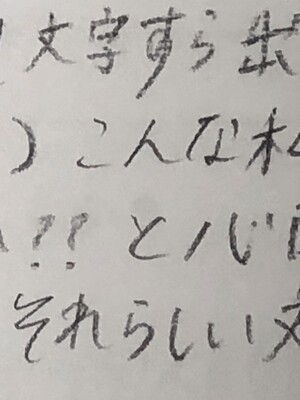 文字すら出
) こんな私
!! と心
それらしい文